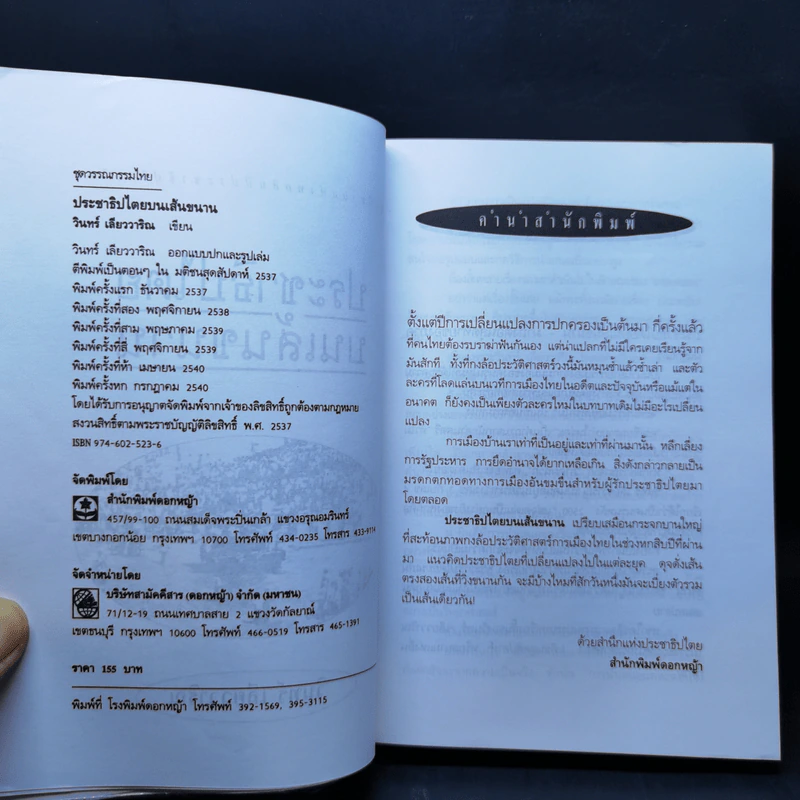 ชุดวรรณกรรมไทย
ประชาธิปไตยบนเส้นขนาน
วินทร์ เลียววาริณ เขียน
วินทร์ เลียววาริณ ออกแบบปกและรูปเล่ม
ตีพิมพ์เป็นตอนๆ ใน มติชนสุดสัปดาห์ 2537
พิมพ์ครั้งแรก ธันวาคม 2537
พิมพ์ครั้งที่สอง พฤศจิกายน 2538
พิมพ์ครั้งที่สาม พฤษภาคม 2539
พิมพ์ครั้งที่สี่ พฤศจิกายน 2539
พิมพ์ครั้งที่ห้า เมษายน 2540
พิมพ์ครั้งหก กรกฎาคม 2540
โดยได้รับการอนุญาตจัดพิมพ์จากเจ้าของลิขสิทธิ์ถูกต้องตามกฎหมาย
สงวนสิทธิ์ตามพระราชบัญญัติลิขสิทธิ์ พ.ศ. 2537
ISBN 974-602-523-6
จัดพิมพ์โดย
สำนักพิมพ์ดอกหญ้า
457/99-100 ถนนสมเด็จพระปิ่นเกล้า แขวงอรุณอมรินทร์
เขตบางกอกน้อย กรุงเทพฯ 10700 โทรศัพท์ 434-0235 โทรสาร 433-9114
จัดจำหน่ายโดย
บริษัทสามัคคีสาร (ดอกหญ้า) จำกัด (มหาชน)
71/12-19 ถนนเทศบาลสาย 2 แขวงวัดกัลยาณ์
เขตธนบุรี กรุงเทพฯ 10600 โทรศัพท์ 466-0519 โทรสาร 465-1391
ราคา 155 บาท
พิมพ์ที่ โรงพิมพ์ดอกหญ้า โทรศัพท์ 392-1569, 395-3115
คำนำสำนักพิมพ์
ตั้งแต่ปีการเปลี่ยนแปลงการปกครองเป็นต้นมา กี่ครั้งแล้ว
ที่คนไทยต้องรบราฆ่าฟันกันเอง แต่น่าแปลกที่ไม่มีใครเคยเรียนรู้จาก
มันสักที ทั้งที่กงล้อประวัติศาสตร์วงนี้มันหมุนซ้ำแล้วซ้ำเล่า และตัว
ละครที่โลดแล่นบนเวทีการเมืองไทยในอดีตและปัจจุบันหรือแม้แต่ใน
อนาคต ก็ยังคงเป็นเพียงตัวละครใหม่ในบทบาทเดิมไม่มีอะไรเปลี่ยน
แปลง
การเมืองบ้านเราเท่าที่เป็นอยู่และเท่าที่ผ่านมานั้น หลีกเลี่ยง
การรัฐประหาร การยึดอำนาจได้ยากเหลือเกิน สิ่งดังกล่าวกลายเป็น
มรดกตกทอดทางการเมืองอันขมขื่นสำหรับผู้รักประชาธิปไตยมา
โดยตลอด
ประชาธิปไตยบนเส้นขนาน เปรียบเสมือนกระจกบานใหญ่
ที่สะท้อนภาพกงล้อประวัติศาสตร์การเมืองไทยในช่วงหกสิบปีที่ผ่าน
มา แนวคิดประชาธิปไตยที่เปลี่ยนแปลงไปในแต่ละยุค ดุจดังเส้น
ตรงสองเส้นที่วิ่งขนานกัน จะมีบ้างไหมที่สักวันหนึ่งมันจะเบี่ยงตัวรวม
เป็นเส้นเดียวกัน!
ด้วยสำนึกแห่งประชาธิปไตย
สำนักพิมพ์ดอกหญ้า